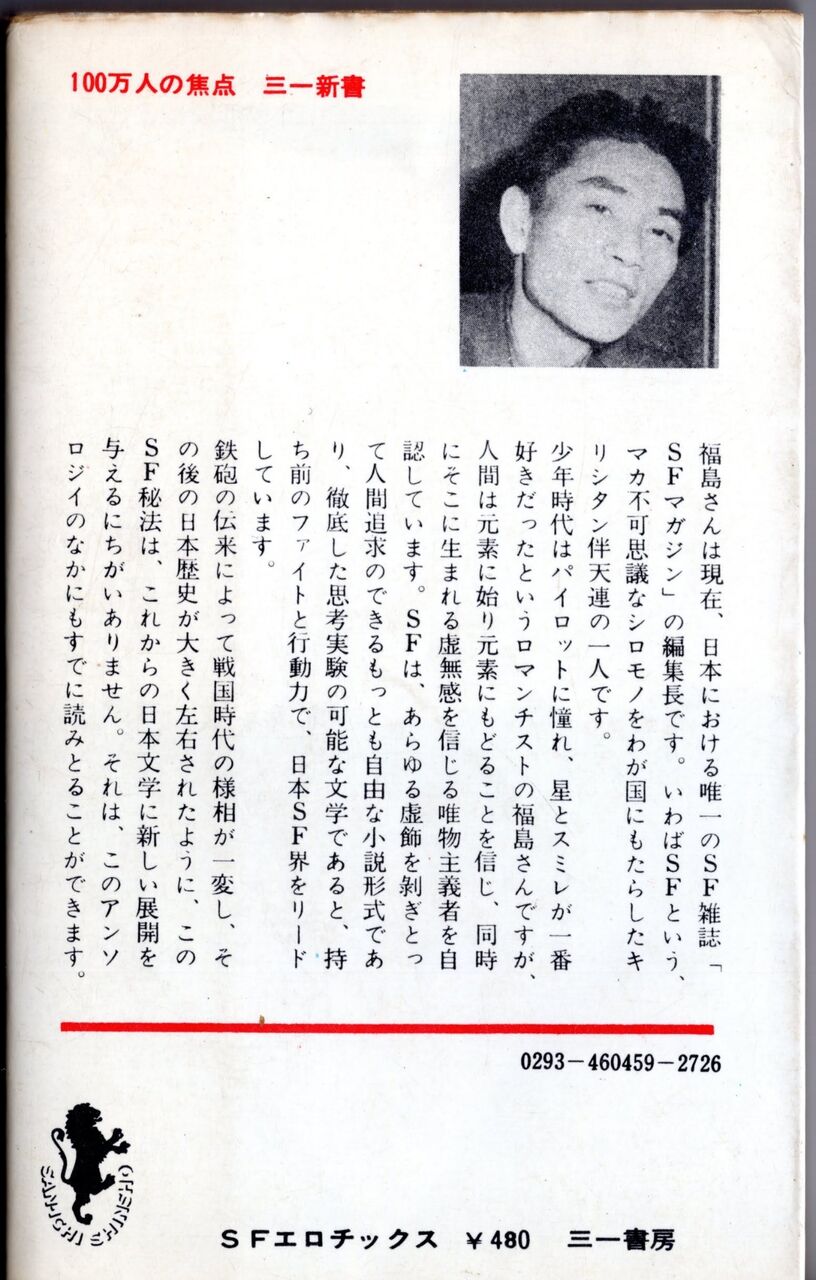 100万人の焦点 三一新書
福島さんは現在、日本における唯一のSF雑誌「
SFマガジン」の編集長です。いわばSFという、
マカ不可思議なシロモノをわが国にもたらしたキ
リシタン伴天連の一人です。
少年時代はパイロットに憧れ、星とスミレが一番
好きだったというロマンチストの福島さんですが、
人間は元素に始り元素にもどることを信じ、同時
にそこに生まれる虚無感を信じる唯物主義者を自
認しています。SFは、あらゆる虚飾を剥ぎとっ
て人間追求のできるもっとも自由な小説形式であ
り、徹底した思考実験の可能な文学であると、持
ち前のファイトと行動力で、日本SF界をリード
しています。
鉄砲の伝来によって戦国時代の様相が一変し、そ
の後の日本歴史が大きく左右されたように、この
SF秘法は、これからの日本文学に新しい展開を
与えるにちがいありません。それは、このアンソ
ロジイのなかにもすでに読みとることができます。
0293-460459-2726
SAN-ICHI SHINSHO
SFエロチックス ¥480 三一書房